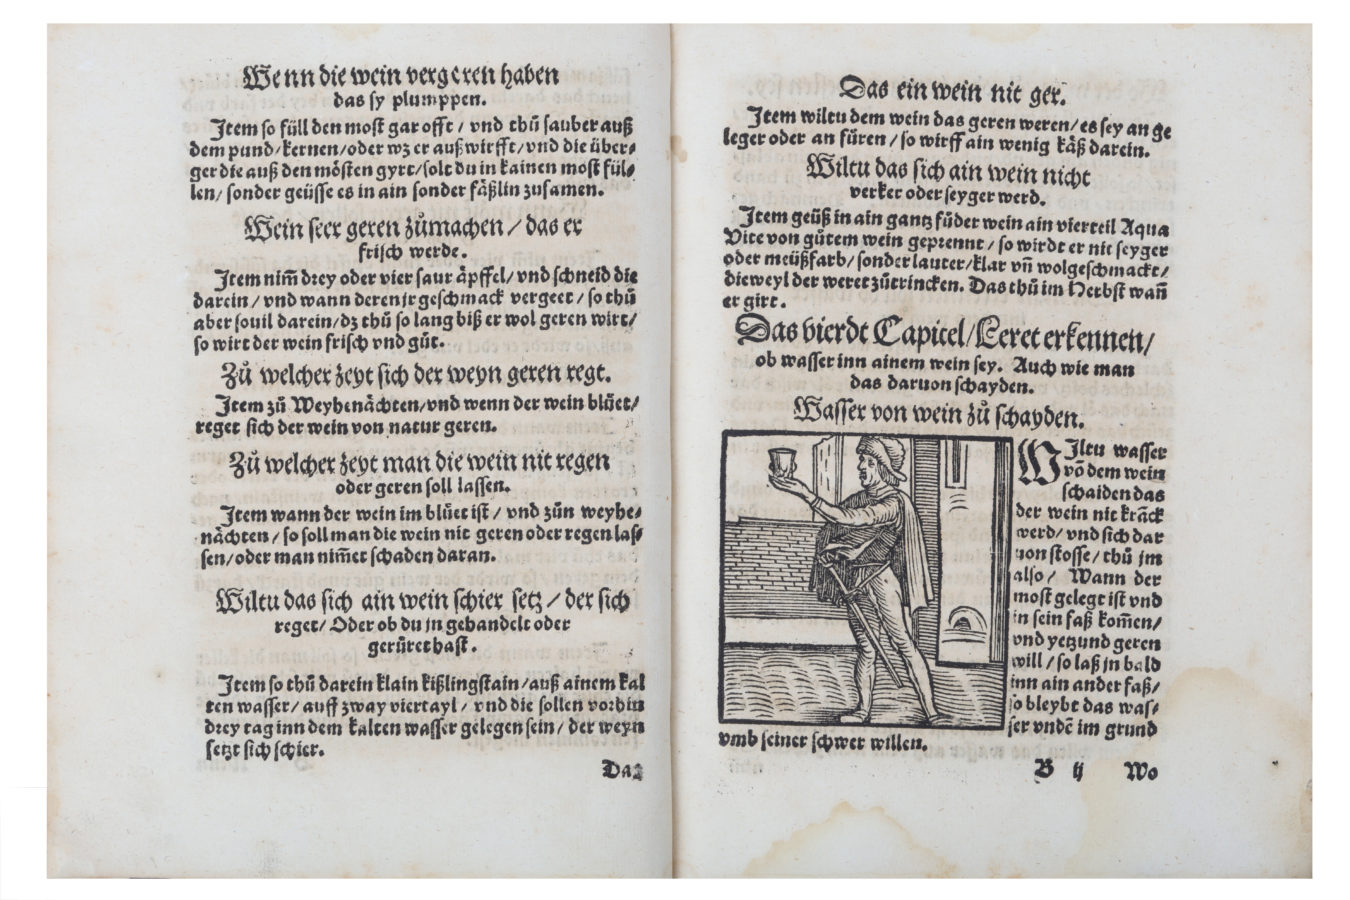 Wenn die wein vergeren haben
das sy plumppen.
Item so füll den most gar offt / vnd thů sauber auß
dem pund / kernen / oder wz er außwirfft / vnd die über⸗
ger die auß den mösten gyrt / solt du in kainen most fül⸗
len / sonder geüsse es in ain sonder fäßlin zusamen.
Wein seer geren zůmachen / das er
frisch werde.
Item nim̃ drey oder vier saur äpffel / vnd schneid die
darein / vnd wann deren jr geschmack vergeet / so thů
aber souil darein / dz thů so lang biß er wol geren wirt /
so wirt der wein frisch vnd gůt.
Zů welcher zeyt sich der weyn geren regt.
Item zů Weyhenächten / vnd wenn der wein blüet /
reget sich der wein von natur geren.
Zů welcher zeyt man die wein nit regen
oder geren soll lassen.
Item wann der wein im blüet ist / vnd zůn weyhe⸗
nächten / so soll man die wein nit geren oder regen las⸗
sen / oder man nim̃et schaden daran.
Wiltu das sich ain wein schier setz / der sich
reget / Oder ob du jn gehandelt oder
gerüret hast.
Item so thů darein klain kißlingstain / auß ainem kal
ten wasser / auff zway viertayl / vnd die sollen vorhin
drey tag inn dem kalten wasser gelegen sein / der weyn
setzt sich schier.
Das
Das ein wein nit ger.
Item wiltu dem wein das geren weren / es sey an ge
leger oder an füren / so wirff ain wenig käß darein.
Wiltu das sich ain wein nicht
verker oder seyger werd.
Item geüß in ain gantz fůder wein ain vierteil Aqua
Vite von gůtem wein geprennt / so wirdt er nit seyger
oder meüßfarb / sonder lauter / klar vñ wolgeschmackt /
dieweyl der weret zůtrincken. Das thů im Herbst wañ
er girt.
Das vierdt Capitel / Leret erkennen /
ob wasser inn ainem wein sey. Auch wie man
das daruon schayden.
Wasser von wein zů schayden.
WIltu wasser
võ dem wein
schaiden das
der wein nit kräck
werd / vnd sich dar
uon stosse / thů jm
also / Wann der
most gelegt ist vnd
in sein faß kom̃en /
vnd yetzund geren
will / so laß jn bald
inn ain ander faß /
so bleybt das was⸗
ser vndẽ im grund
vmb seiner schwer willen.
B ij Wo